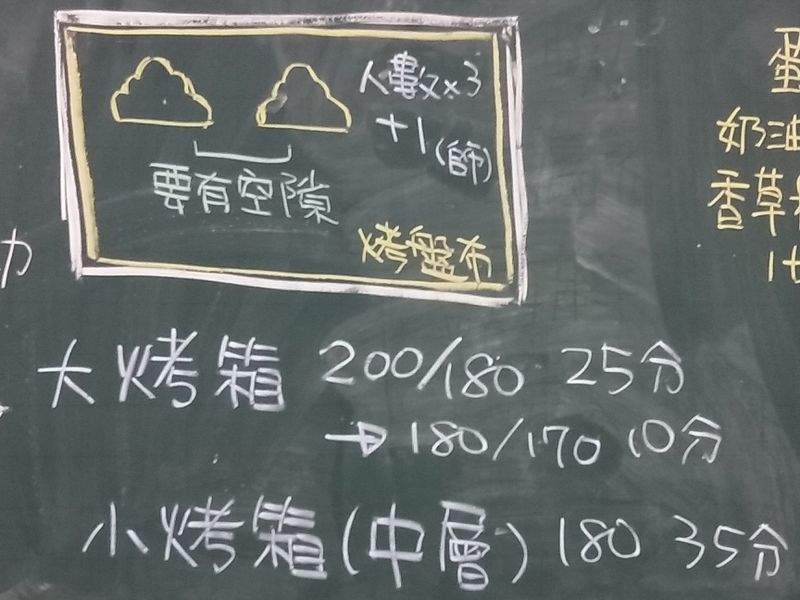 人數x3
+1(師)
要有空隙
烤盤布
力
蛋
奶油
香草
1t
大烤箱 200/180 25分
→ 180/170 10分
小烤箱(中層) 180 35分